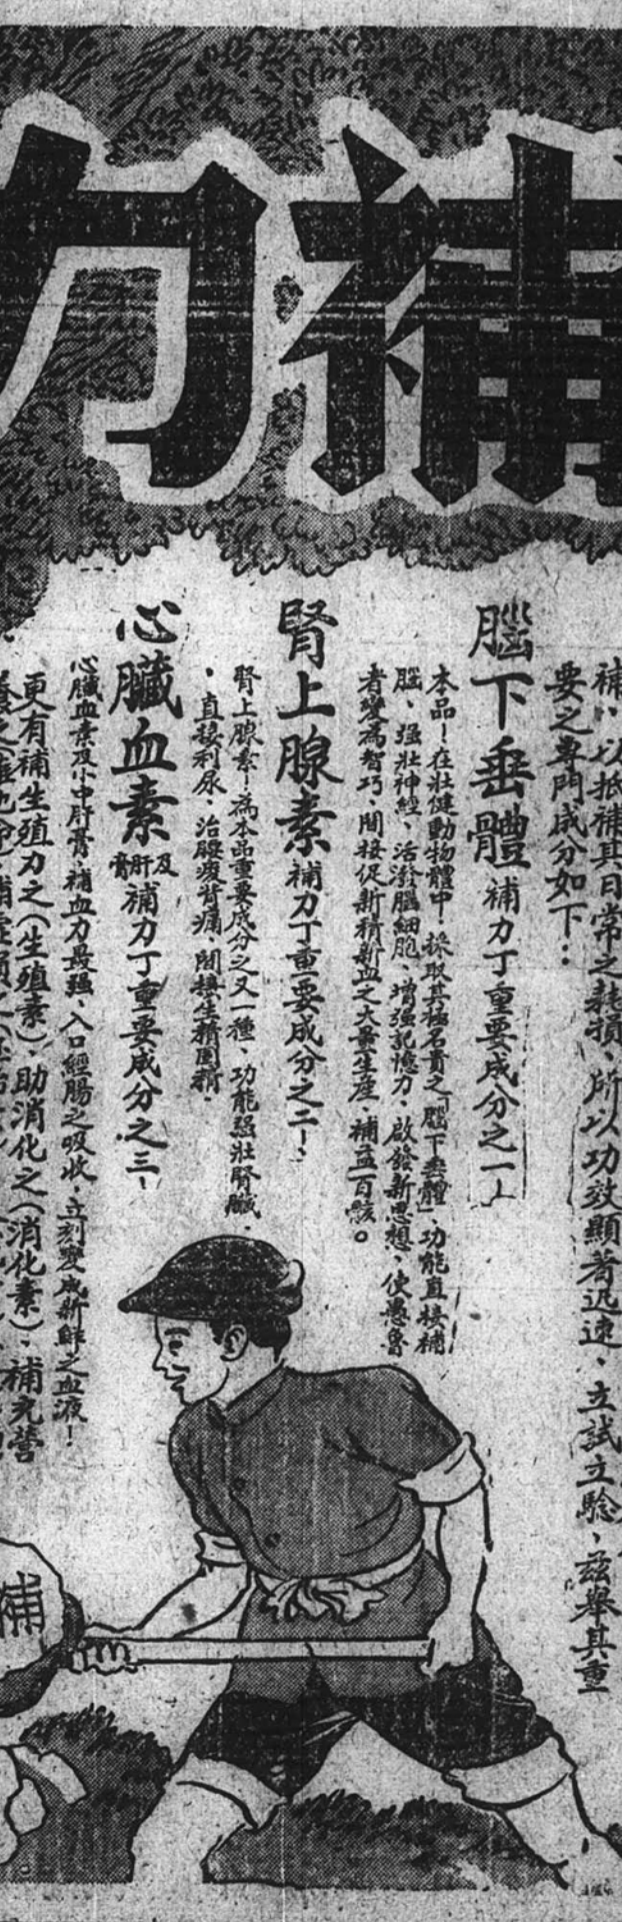 補力
補、以抵補其日常之耗損、所以功效顯著迅速、立試立驗、茲舉其重
要之專門成分如下：
腦下垂體 補力丁重要成分之一！
本品！在壯健動物體中！採取其極名貴之「腦下垂體」功能直接補
腦、強壯神經、活潑腦細胞、增強記憶力、啟發新思想、使愚魯
者變為智巧、間接促新精新血之大量生產、補益百骸。
腎上腺素 補力丁重要成分之二！、
腎上腺素！為本品重要成分之又一種、功能強壯腎臟
、直接利尿、治腰痠背痛、間接生精固精、
心臟血素及肝膏 補力丁重要成分之三、
心臟血素及小中肝膏、補血力最強、入口經腸之吸收、立刻變成新鮮之血液！
更有補生殖力之（生殖素）、助消化之（消化素）、補充營
補